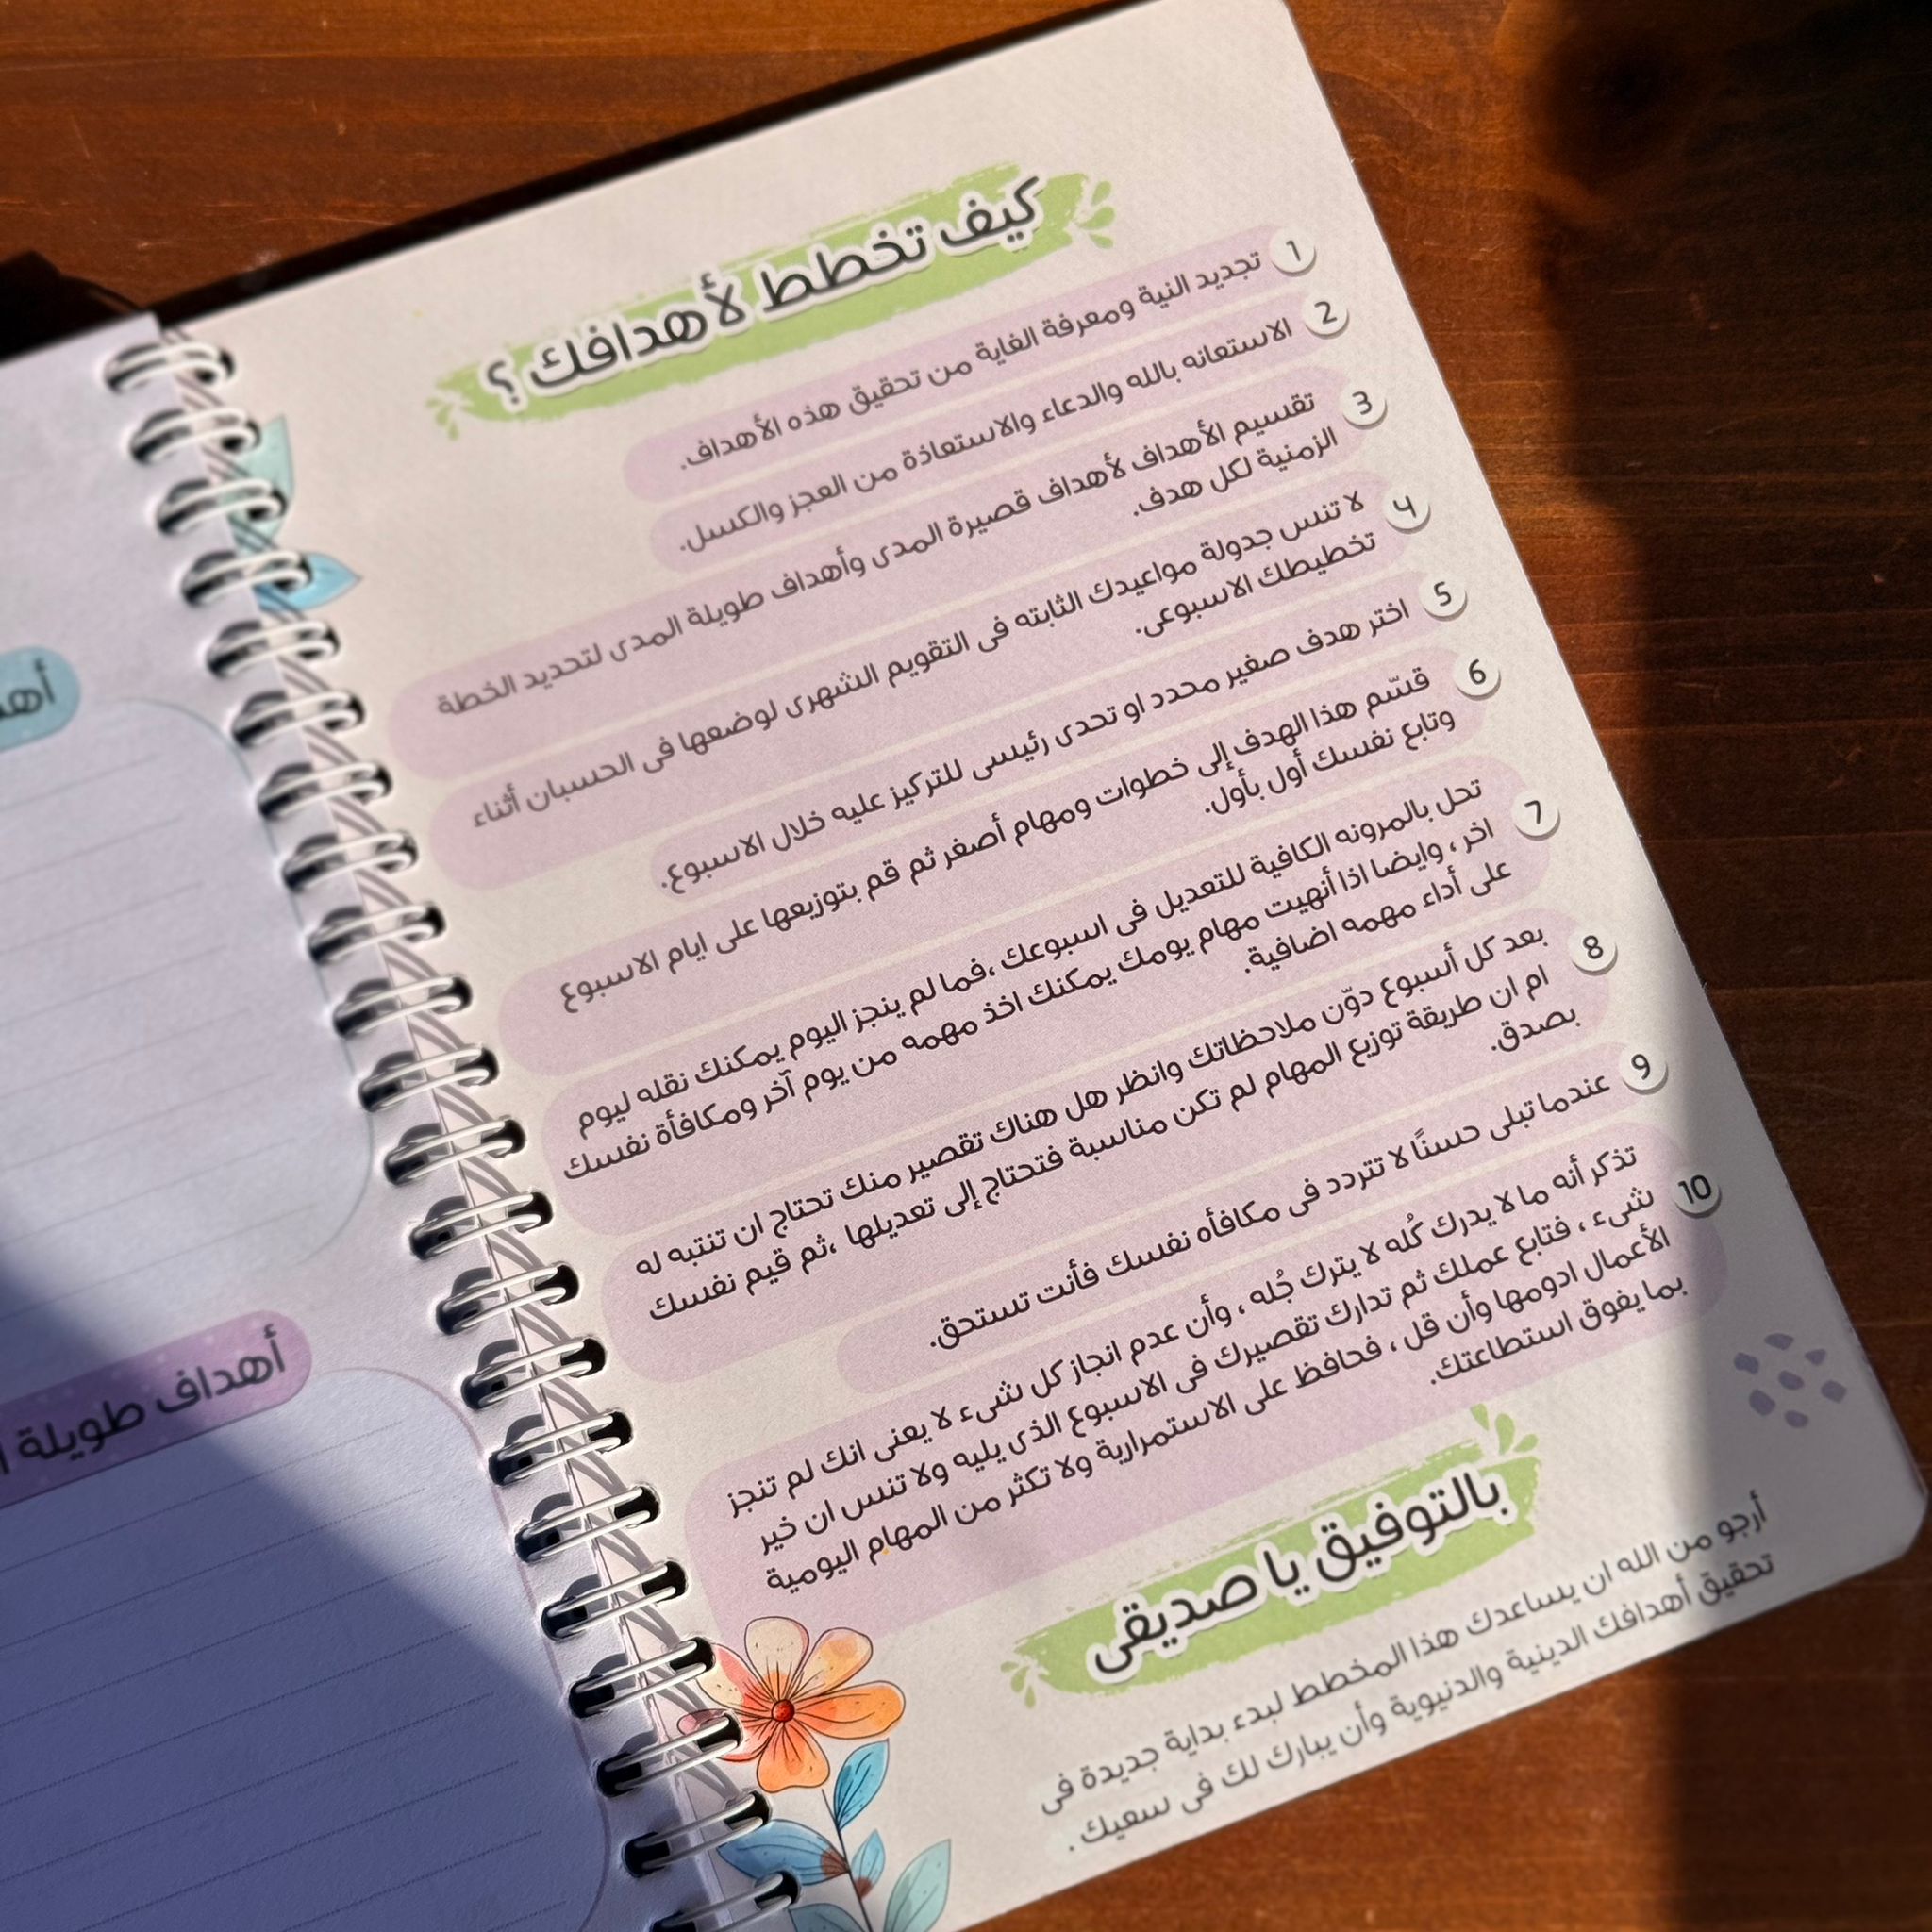 كيف تخطط لأهدافك ؟
1 تجديد النية ومعرفة الغاية من تحقيق هذه الأهداف.
2 الاستعانه بالله والدعاء والاستعاذة من العجز والكسل.
3 تقسيم الأهداف لأهداف قصيرة المدى وأهداف طويلة المدى لتحديد الخطة
الزمنية لكل هدف.
4 لا تنس جدولة مواعيدك الثابته فى التقويم الشهرى لوضعها فى الحسبان أثناء
تخطيطك الاسبوعى.
5 اختر هدف صغير محدد او تحدى رئيسى للتركيز عليه خلال الاسبوع.
6 قسّم هذا الهدف إلى خطوات ومهام أصغر ثم قم بتوزيعها على ايام الاسبوع
وتابع نفسك أول بأول.
7 تحل بالمرونه الكافية للتعديل فى اسبوعك ،فما لم ينجز اليوم يمكنك نقله ليوم
اخر ، وايضا اذا أنهيت مهام يومك يمكنك اخذ مهمه من يوم آخر ومكافأة نفسك
على أداء مهمه اضافية.
8 بعد كل أسبوع دوّن ملاحظاتك وانظر هل هناك تقصير منك تحتاج ان تنتبه له
ام ان طريقة توزيع المهام لم تكن مناسبة فتحتاج إلى تعديلها ،ثم قيم نفسك
بصدق.
9 عندما تبلى حسنًا لا تتردد فى مكافأه نفسك فأنت تستحق.
10 تذكر أنه ما لا يدرك كُله لا يترك جُله ، وأن عدم انجاز كل شىء لا يعنى انك لم تنجز
شىء ، فتابع عملك ثم تدارك تقصيرك فى الاسبوع الذى يليه ولا تنس ان خير
الأعمال ادومها وأن قل ، فحافظ على الاستمرارية ولا تكثر من المهام اليومية
بما يفوق استطاعتك.
بالتوفيق يا صديقى
أرجو من الله ان يساعدك هذا المخطط لبدء بداية جديدة فى
تحقيق أهدافك الدينية والدنيوية وأن يبارك لك فى سعيك .
أهداف طويلة